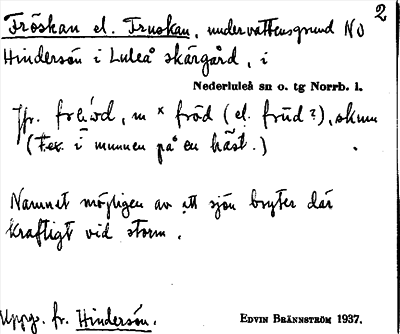 2
Fröskan el. Fruskan, undervattensgrund NO
Hindersön i Luleå skärgård, i
Nederluleå sn o. tg Norrb. l.
Jfr. m × fröd (el. frud?), skum
(T.ex. i munnen på en häst.)
Namnet möjligen av att sjön bryter där
kraftigt vid storm.
Uppg. fr. Hindersön. EDVIN BRÄNNSTRÖM 1937.